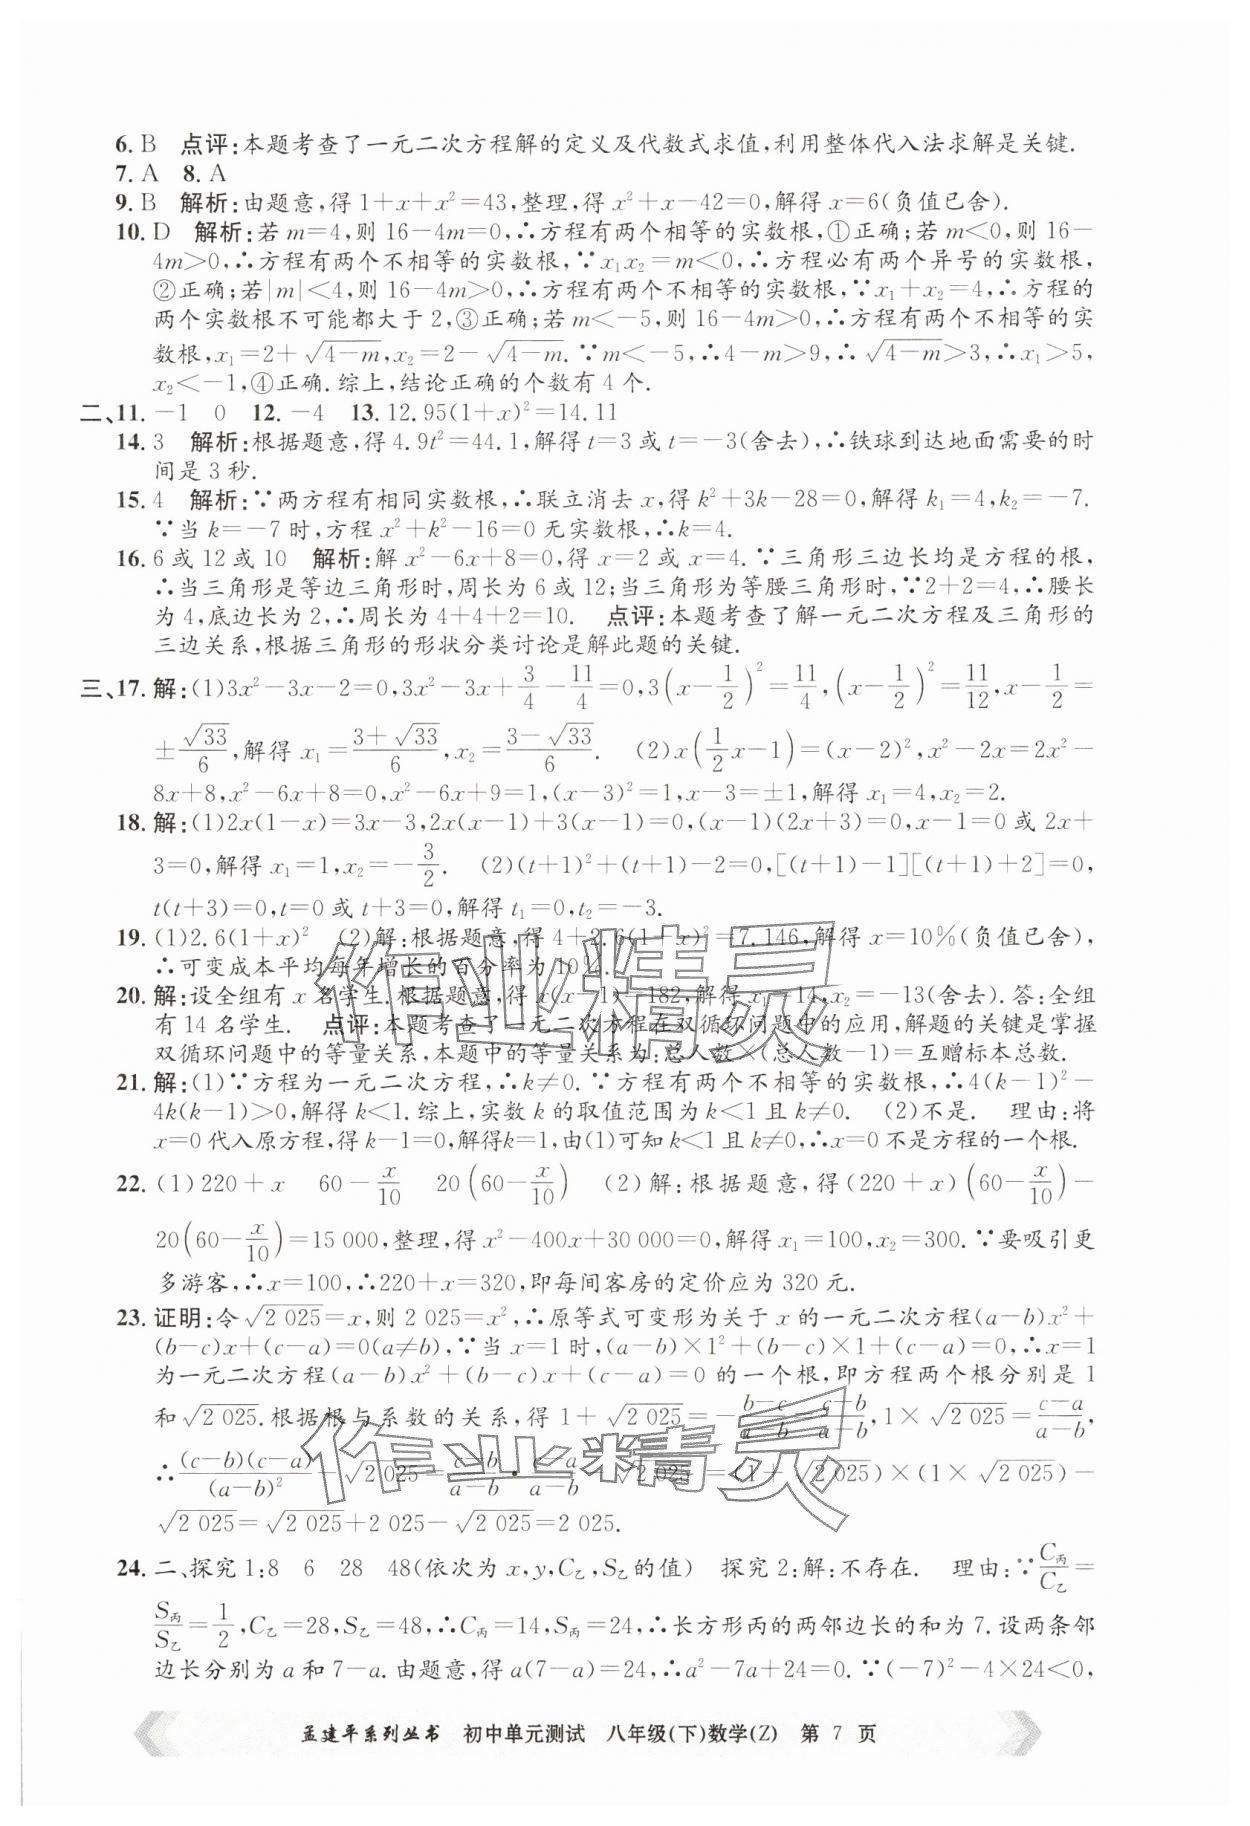 6. B　点评:本题考查了一元二次方程解的定义及代数式求值,利用整体代入法求解是关键.
7. A　8. A
9. B　解析:由题意,得 1+x+x²=43,整理,得 x²+x-42=0,解得 x=6(负值已舍).
10. D　解析:若 m=4,则 16-4m=0,∴方程有两个相等的实数根,①正确;若 m<0,则 16-
4m>0,∴方程有两个不相等的实数根,∵x₁x₂=m<0,∴方程必有两个异号的实数根,
②正确;若|m|<4,则 16-4m>0,∴方程有两个不相等的实数根,∵x₁+x₂=4,∴方程的
两个实数根不可能都大于 2,③正确;若 m<-5,则 16-4m>0,∴方程有两个不相等的实
数根,x₁=2+√(4-m),x₂=2-√(4-m).∵m<-5,∴4-m>9,∴√(4-m)>3,∴x₁>5,
x₂<-1,④正确.综上,结论正确的个数有 4 个.
二、11. -1　0　12. -4　13. 12.95(1+x)²=14.11
14. 3　解析:根据题意,得 4.9t²=44.1,解得 t=3 或 t=-3(舍去),∴铁球到达地面需要的时
间是 3 秒.
15. 4　解析:∵两方程有相同实数根,∴联立消去 x,得 k²+3k-28=0,解得 k₁=4,k₂=-7.
∵当 k=-7 时,方程 x²+k²-16=0 无实数根,∴k=4.
16. 6 或 12 或 10　解析:解 x²-6x+8=0,得 x=2 或 x=4.∵三角形三边长均是方程的根,
∴当三角形是等边三角形时,周长为 6 或 12;当三角形为等腰三角形时,∵2+2=4,∴腰长
为 4,底边长为 2,∴周长为 4+4+2=10.　点评:本题考查了解一元二次方程及三角形的
三边关系,根据三角形的形状分类讨论是解此题的关键.
三、17. 解:(1)3x²-3x-2=0,3x²-3x+3/4-11/4=0,3(x-1/2)²=11/4,(x-1/2)²=11/12,x-1/2=
±√33/6,解得 x₁=(3+√33)/6,x₂=(3-√33)/6.　(2)x(1/2x-1)=(x-2)²,x²-2x=2x²-
8x+8,x²-6x+8=0,x²-6x+9=1,(x-3)²=1,x-3=±1,解得 x₁=4,x₂=2.
18. 解:(1)2x(1-x)=3x-3,2x(x-1)+3(x-1)=0,(x-1)(2x+3)=0,x-1=0 或 2x+
3=0,解得 x₁=1,x₂=-3/2.　(2)(t+1)²+(t+1)-2=0,[(t+1)-1][(t+1)+2]=0,
t(t+3)=0,t=0 或 t+3=0,解得 t₁=0,t₂=-3.
19. (1)2.6(1+x)²　(2)解:根据题意,得 4+2.6(1+x)²=7.146,解得 x=10%(负值已舍),
∴可变成本平均每年增长的百分率为 10%.
20. 解:设全组有 x 名学生.根据题意,得 x(x-1)=182,解得 x₁=14,x₂=-13(舍去).答:全组
有 14 名学生.　点评:本题考查了一元二次方程在双循环问题中的应用,解题的关键是掌握
双循环问题中的等量关系,本题中的等量关系为:总人数×(总人数-1)=互赠标本总数.
21. 解:(1)∵方程为一元二次方程,∴k≠0.∵方程有两个不相等的实数根,∴4(k-1)²-
4k(k-1)>0,解得 k<1.综上,实数 k 的取值范围为 k<1 且 k≠0.　(2)不是.　理由:将
x=0 代入原方程,得 k-1=0,解得k=1,由(1)可知 k<1 且 k≠0,∴x=0 不是方程的一个根.
22. (1)220+x　60-x/10　20(60-x/10)　(2)解:根据题意,得(220+x)(60-x/10)-
20(60-x/10)=15 000,整理,得 x²-400x+30 000=0,解得 x₁=100,x₂=300.∵要吸引更
多游客,∴x=100,∴220+x=320,即每间客房的定价应为 320 元.
23. 证明:令√2 025=x,则 2 025=x²,∴原等式可变形为关于 x 的一元二次方程(a-b)x²+
(b-c)x+(c-a)=0(a≠b),∵当 x=1 时,(a-b)×1²+(b-c)×1+(c-a)=0,∴x=1
为一元二次方程(a-b)x²+(b-c)x+(c-a)=0 的一个根,即方程两个根分别是 1
和√2 025.根据根与系数的关系,得 1+√2 025=-(b-c)/(a-b)=(c-b)/(a-b),1×√2 025=(c-a)/(a-b),
∴(c-b)(c-a)/(a-b)²-√2 025=(c-b)/(a-b)·(c-a)/(a-b)-√2 025=(1+√2 025)×(1×√2 025)-
√2 025=√2 025+2 025-√2 025=2 025.
24. 二、探究 1:8　6　28　48(依次为 x,y,C乙,S乙的值)　探究 2:解:不存在.　理由:∵C丙/C乙=
S丙/S乙=1/2,C乙=28,S乙=48,∴C丙=14,S丙=24,∴长方形丙的两邻边长的和为 7.设两条邻
边长分别为 a 和 7-a.由题意,得 a(7-a)=24,∴a²-7a+24=0.∵(-7)²-4×24<0,
孟建平系列丛书　初中单元测试　八年级(下)数学(Z)　第 7 页
作业精灵
作业精灵